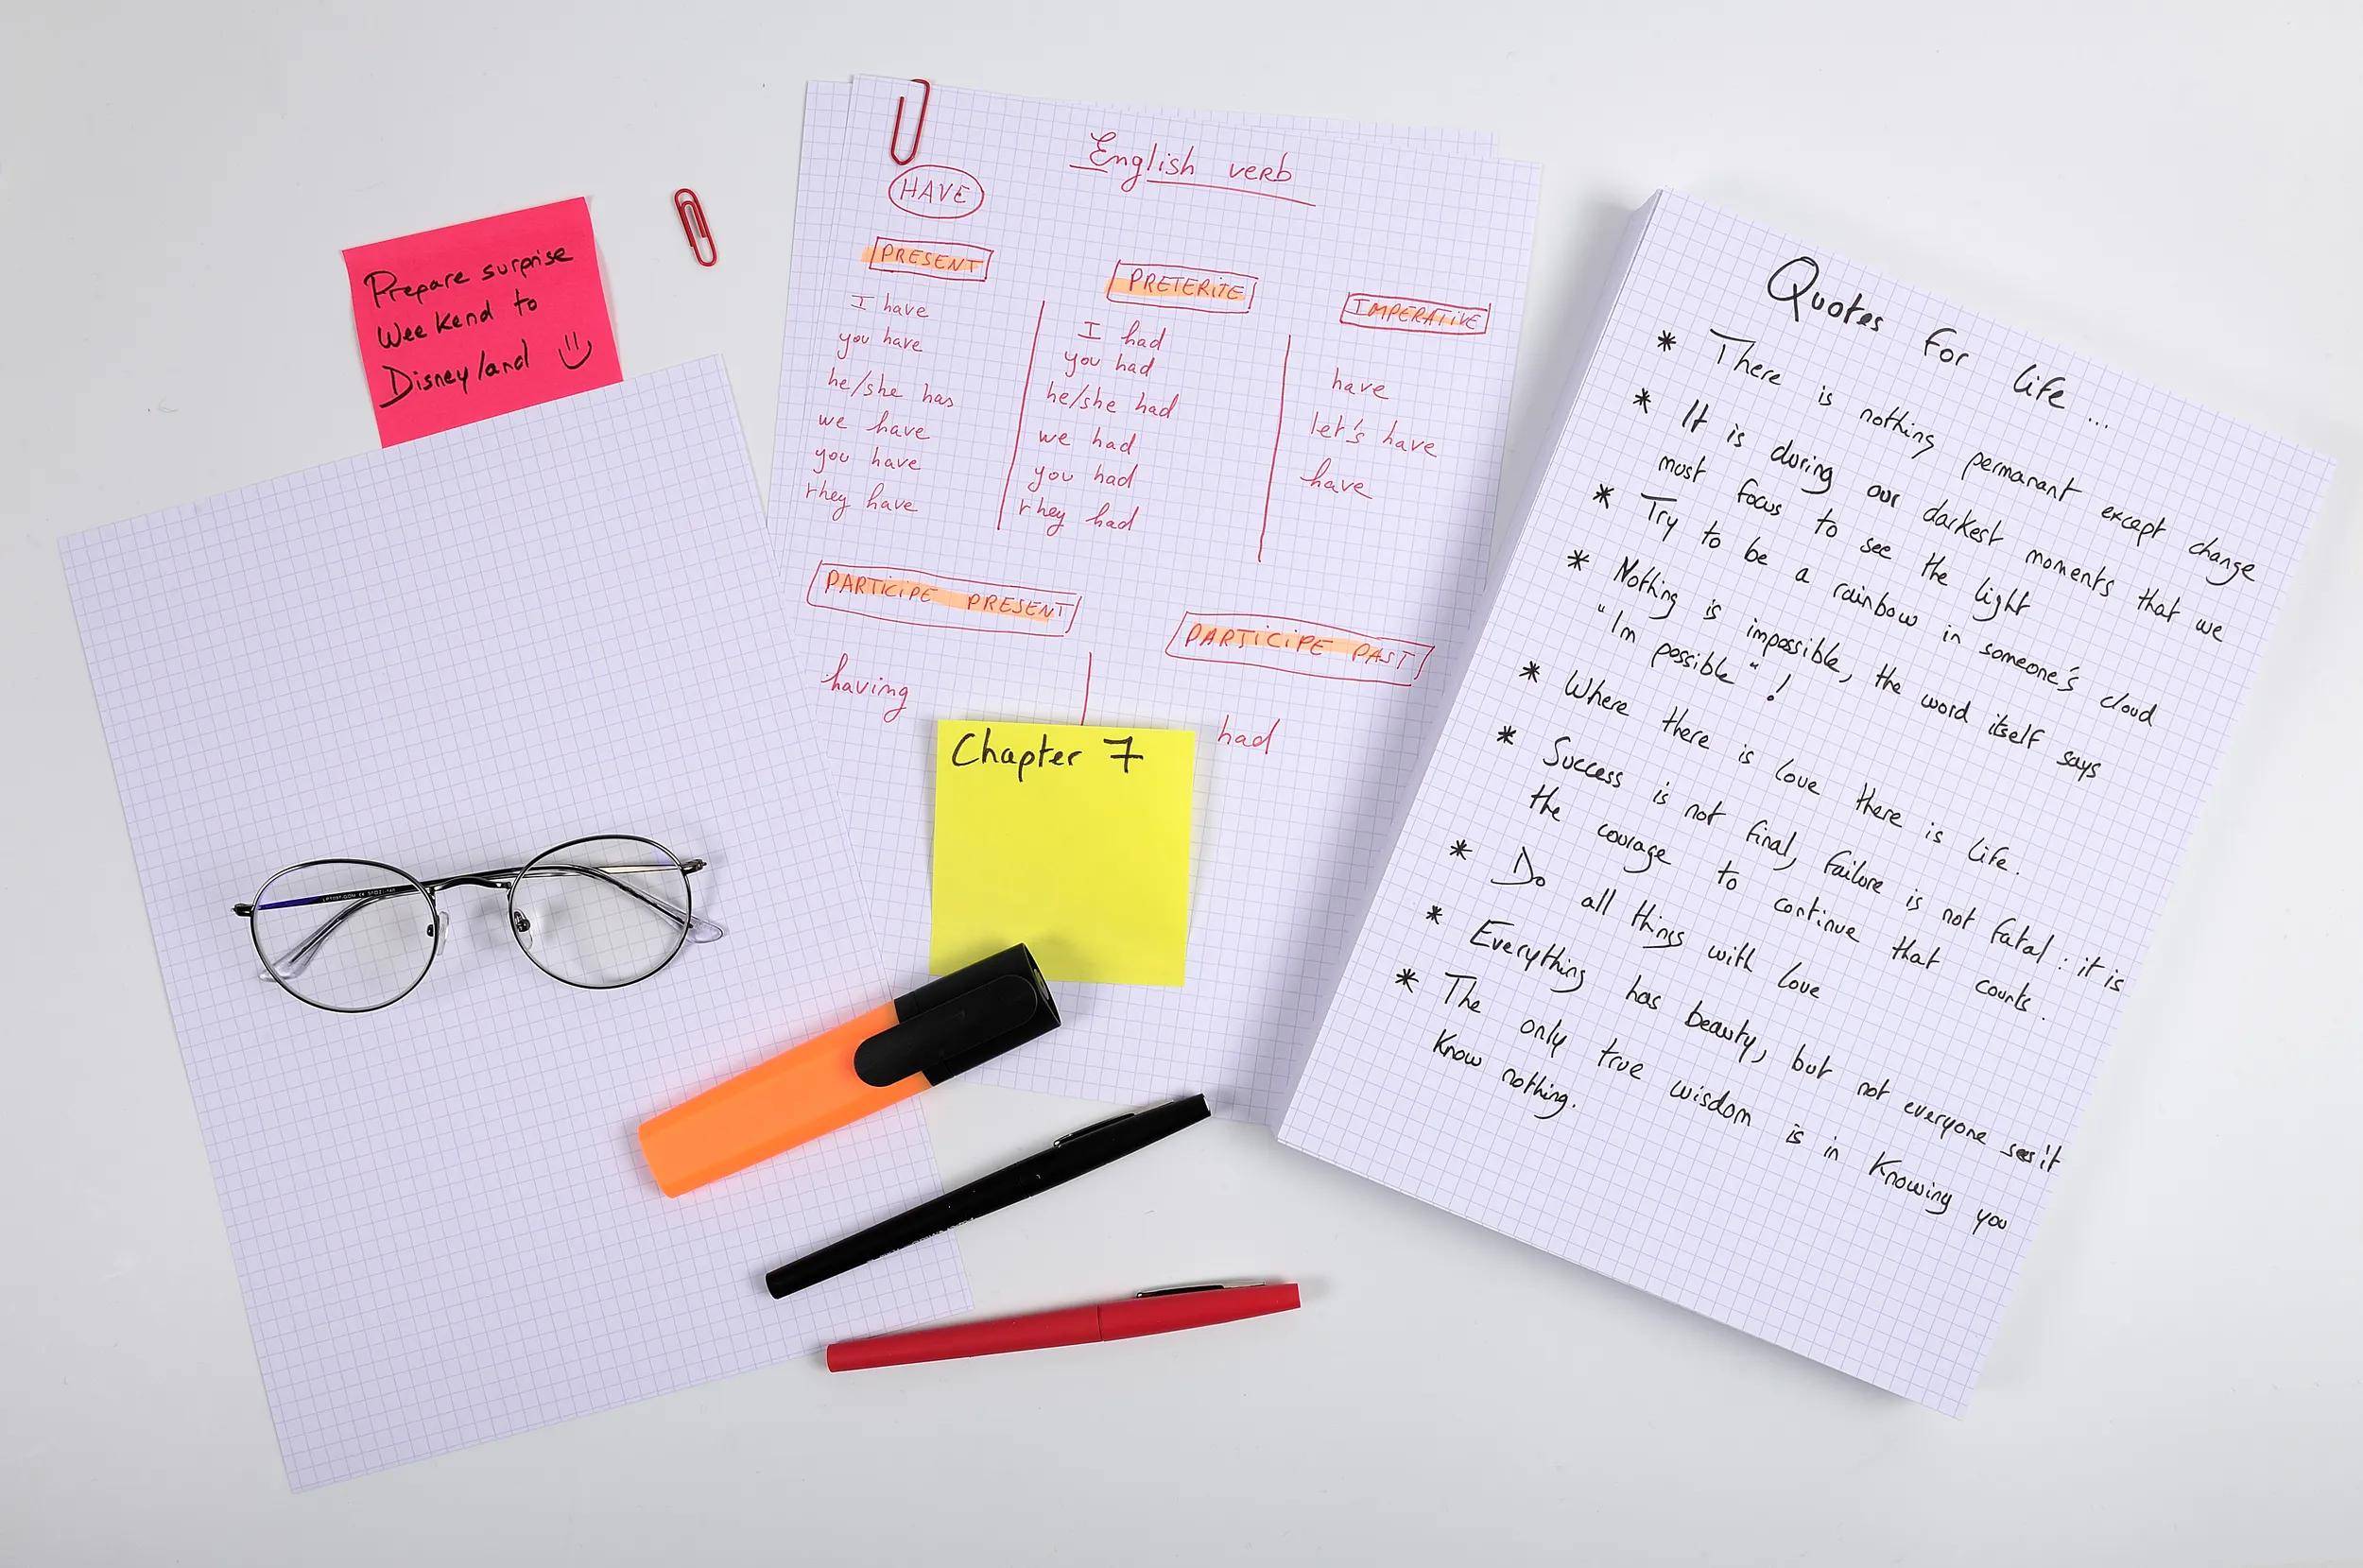 Prepare surprise
Weekend to
Disneyland
English verb
HAVE
PRESENT
I have
you have
he/she has
we have
you have
they have
PRETERITE
I had
you had
he/she had
we had
you had
they had
IMPERATIVE
have
let's have
have
PARTICIPE PRESENT
having
PARTICIPE PAST
had
Chapter 7
Quotes for life ....
* There is nothing permanant except change
* It is during our darkest moments that we
must focus to see the light
* Try to be a rainbow in someone's cloud
* Nothing is impossible, the word itself says
"Im possible" !
* Where there is love there is life.
* Success is not final, failure is not fatal : it is
the courage to continue that counts.
* Do all things with love
* Everything has beauty, but not everyone sees it
* The only true wisdom is in knowing you
know nothing.